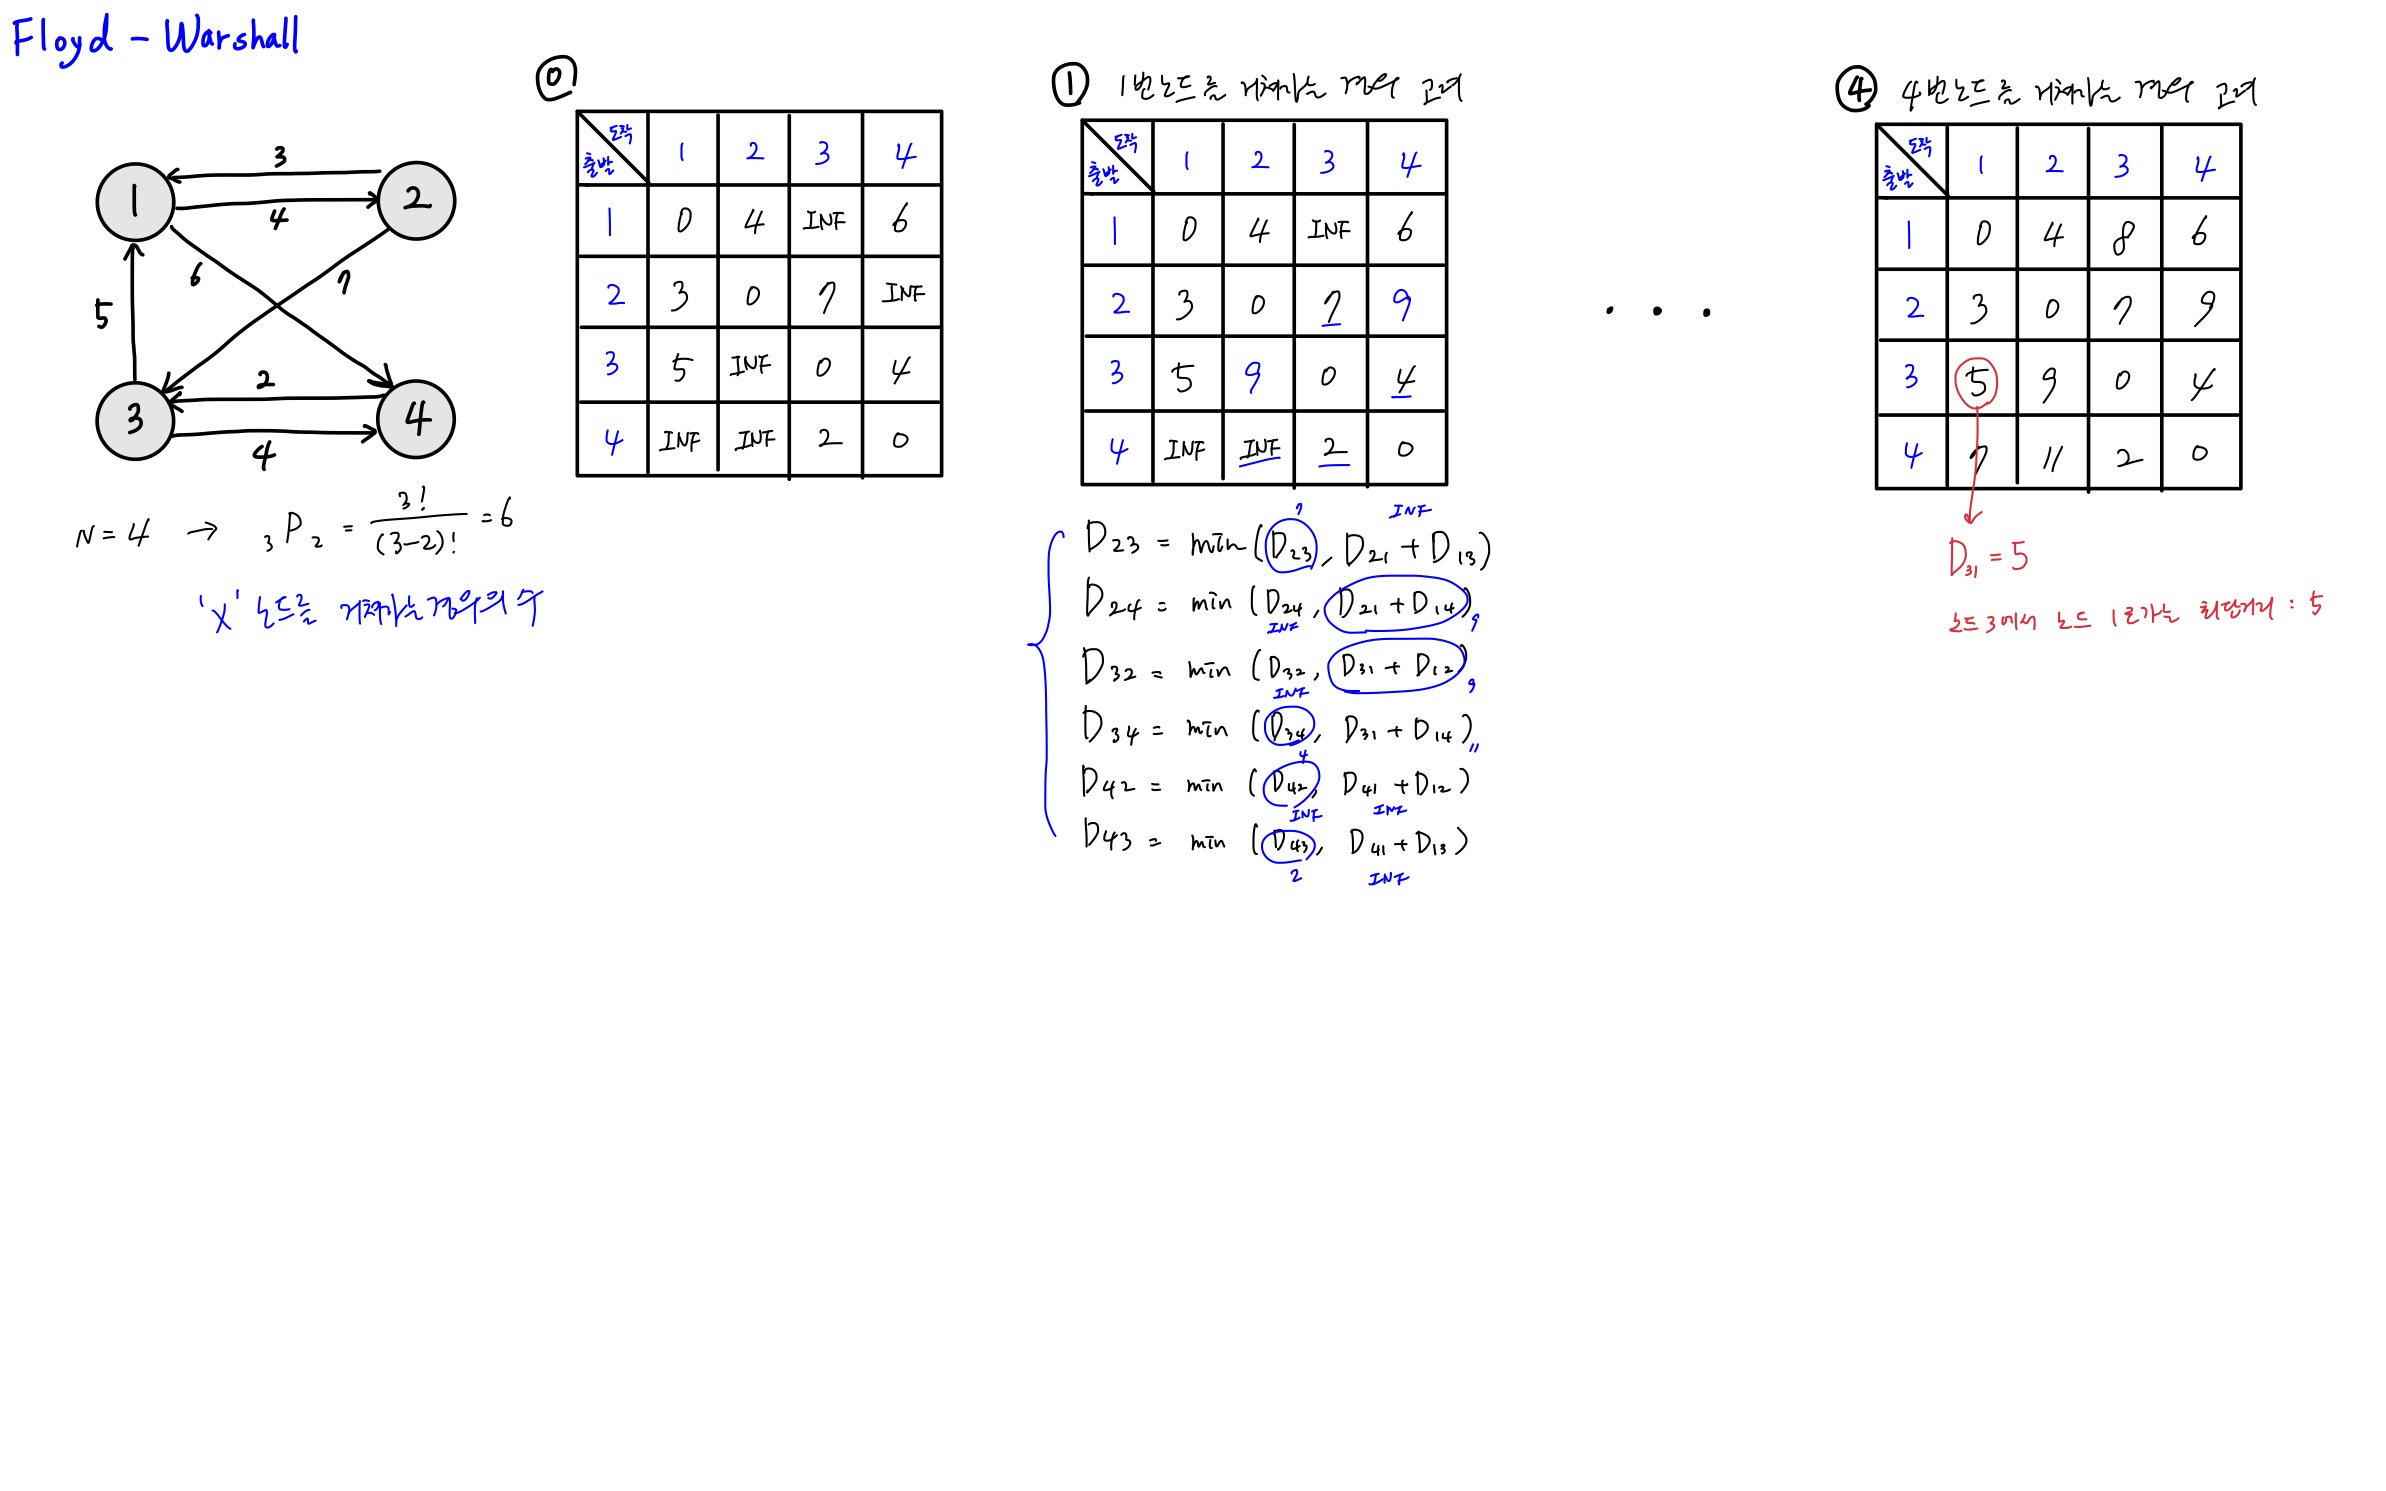 Floyd - Warshall
3
1
2
4
6
7
5
2
3
4
4
N = 4 → ₃P₂ = 3! / (3-2)! = 6
'X' 노드를 거쳐가는 경우의 수
⓪
도착 출발 1 2 3 4
1 0 4 INF 6
2 3 0 7 INF
3 5 INF 0 4
4 INF INF 2 0
① 1번 노드를 거쳐가는 경우 고려
도착 출발 1 2 3 4
1 0 4 INF 6
2 3 0 7 9
3 5 9 0 4
4 INF INF 2 0
7 INF
D23 = min(D23, D21 + D13)
D24 = min (D24, D21 + D14)
INF 9
D32 = min (D32, D31 + D12)
INF 9
D34 = min (D34, D31 + D14)
4 11
D42 = min (D42, D41 + D12)
INF INF
D43 = min (D43, D41 + D13)
2 INF
. . .
④ 4번 노드를 거쳐가는 경우 고려
도착 출발 1 2 3 4
1 0 4 8 6
2 3 0 7 9
3 5 9 0 4
4 7 11 2 0
D31 = 5
노드 3에서 노드 1로 가는 최단거리 : 5